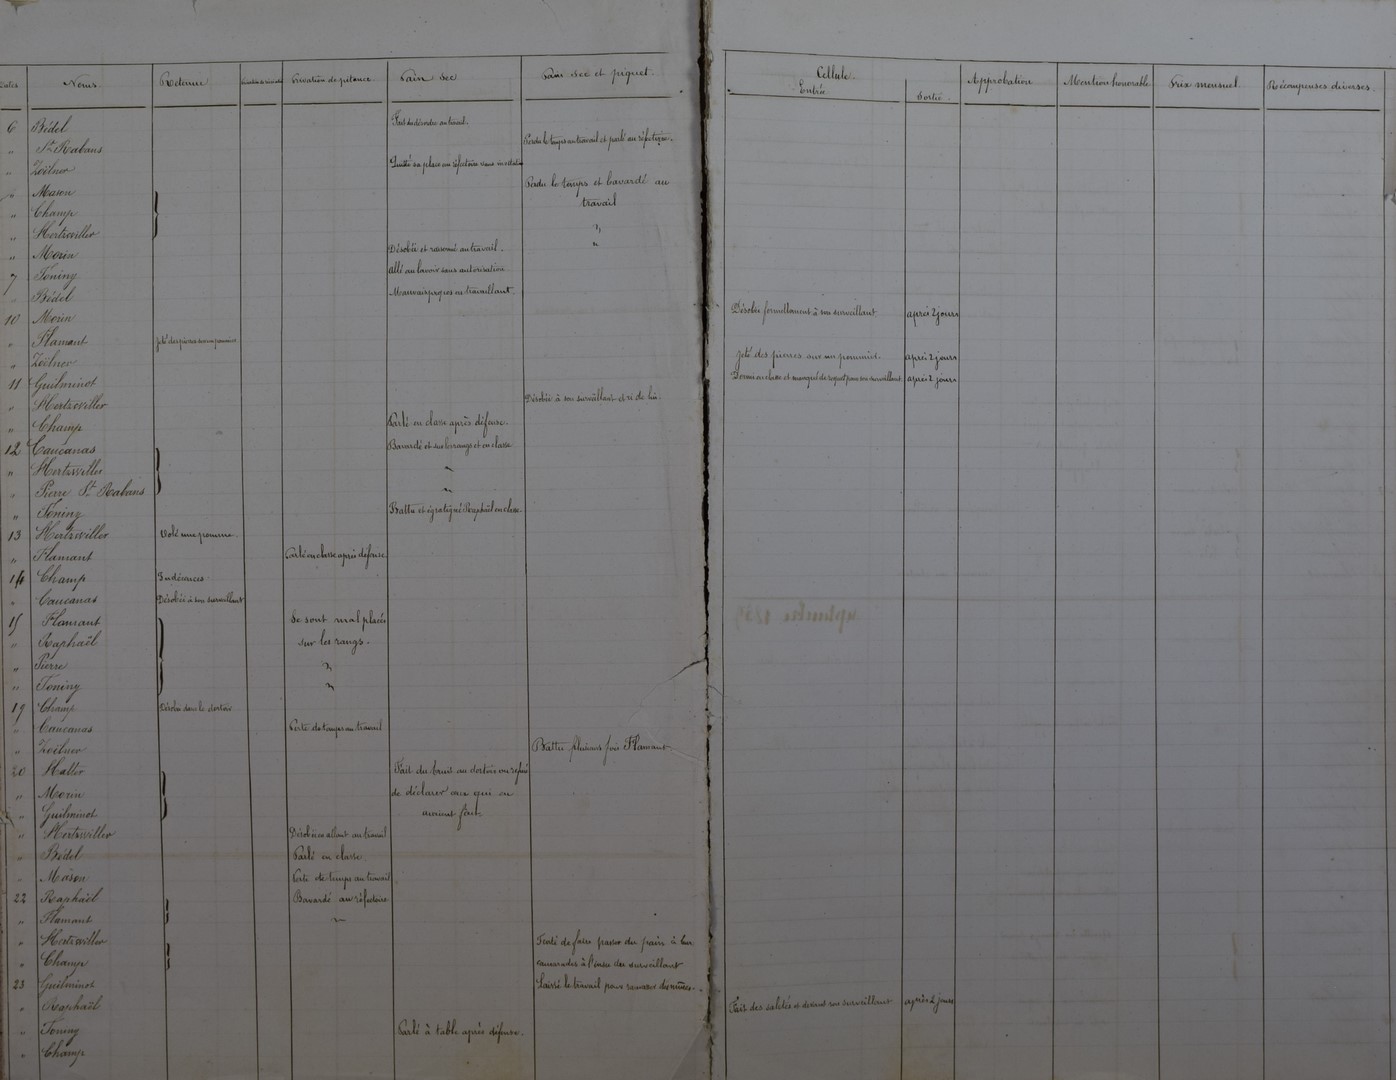 Dates Noms. Retenue Privation de pitance Pain sec Pain sec et piquet. Cellule. Entrée Sortie Approbation Mention honorable Prix mensuel Récompenses diverses
6 Bédel
" St Rabans Perdu le temps au travail et parlé au réfectoire.
" Zoëlner
" Mason Perdu le temps et bavardé au
" Champ travail
" Hertzviller "
" Morin Désobéi et raisonné au travail. "
7 Toning allé au lavoir sans autorisation
" Bédel Mauvais propos en travaillant.
10 Morin Désobéi formellement à son surveillant après 2 jours
" Flamant Jeté des pierres sur un pommier
" Zoëlner Jeté des pierres sur un pommier. après 2 jours
11 Guilminot Dormi en classe et manqué de respect pour son surveillant après 2 jours
" Hertzviller Désobéi à son surveillant et ri de lui.
" Champ Parlé en classe après défense.
12 Caucanas Bavardé et sur les rangs et en classe
" Hertzviller "
" Pierre St Rabans "
" Toning Battu et égratigné Raphaël en classe.
13 Hertzviller Volé une pomme.
" Flamant Parlé en classe après défense
14 Champ Indécences
" Caucanas Désobéi à son surveillant
15 Flamant Se sont mal placés
" Raphaël sur les rangs.
" Pierre "
" Toning "
19 Champ Désobéi dans le dortoir
" Caucanas Perte de temps au travail
" Zoëlner Battu plusieurs fois Flamant.
20 Hatter Fait du bruit au dortoir ou refusé
" Morin de déclarer ceux qui en
" Guilminot avaient fait.
" Hertzviller Désobéi en allant au travail
" Bédel Parlé en classe.
" Mason Perte de temps au travail
22 Raphaël Bavardé au réfectoire
" Flamant "
" Hertzviller Tenté de faire passer du pain à leurs
" Champ camarades à l'insu du surveillant
23 Guilminot Laissé le travail pour ramasser des mûres.
" Raphaël Fait des saletés et devant son surveillant après 2 jours
" Toning Parlé à table après défense.
" Champ